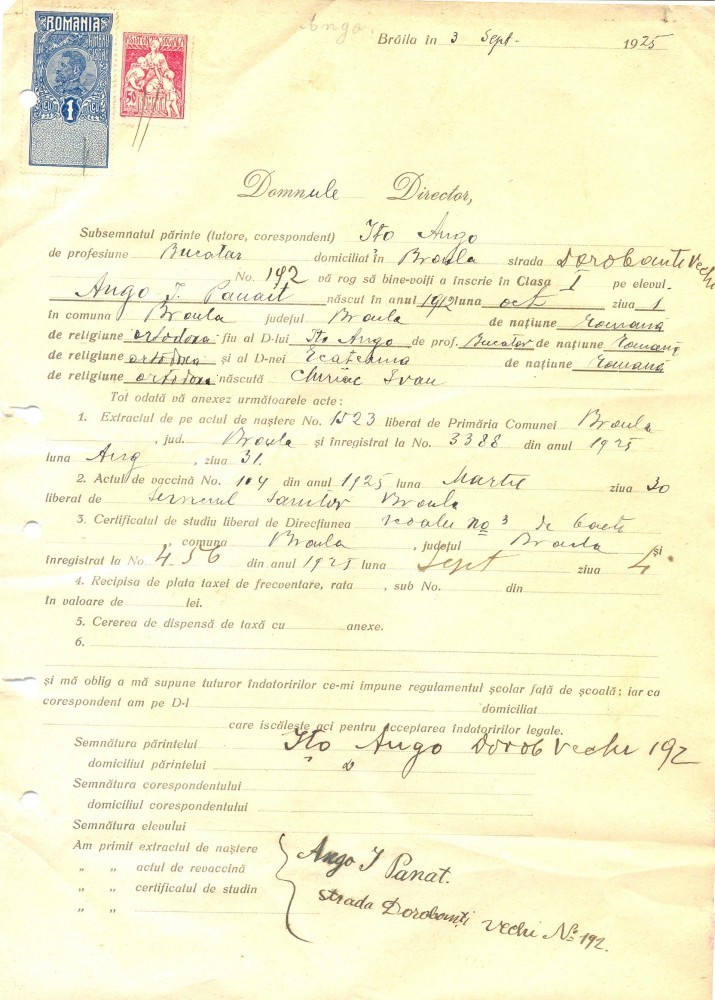 ROMANIA
TIMBRU FISCAL
1 LEU
ASISTENȚA SOCIALA
50
Ango.
Brăila în 3 Sept. 1925
Domnule Director,
Subsemnatul părinte (tutore, corespondent) Ito Ango
de profesiune Bucatar domiciliat în Braila strada Dorobanti Vechi
No. 192 vă rog să bine-voiți a înscrie în Clasa I pe elevul
Ango I. Panait născut în anul 1912 luna oct ziua 1
în comuna Braila județul Braila de națiune Romană
de religiune ortodoxa fiu al D-lui Ito Ango de prof. Bucatar de națiune Romană
de religiune ortodoxa și al D-nei Ecaterina de națiune Romană
de religiune ortodoxa născută Chiriac Ivan
Tot odată vă anexez următoarele acte :
1. Extractul de pe actul de naștere No. 1523 liberat de Primăria Comunei Braila
, jud. Braila și înregistrat la No. 3388 din anul 1925
luna Aug , ziua 31.
2. Actul de vaccină No. 104 din anul 1925 luna Martie ziua 30
liberat de Serviciul Sanitar Braila
3. Certificatul de studiu liberat de Direcțiunea scoalei no 3 de baeti
, comuna Braila , județul Braila și
înregistrat la No 456 din anul 1925 luna Sept ziua 4
4. Recipisa de plata taxei de frecventare, rata , sub No. din
în valoare de lei.
5. Cererea de dispensă de taxă cu anexe.
6.
și mă oblig a mă supune tuturor îndatoririlor ce-mi impune regulamentul școlar față de școală ; iar ca
corespondent am pe D-l domiciliat
care iscălește aci pentru acceptarea îndatoririlor legale.
Semnătura părintelui Ito Ango Dorob Vechi 192
domiciliul părintelui
Semnătura corespondentului
domiciliul corespondentului
Semnătura elevului
Am primit extractul de naștere
„ „ actul de revaccină
„ „ certificatul de studin
„ „
Ango I Panat.
strada Dorobanți Vechi No 192.